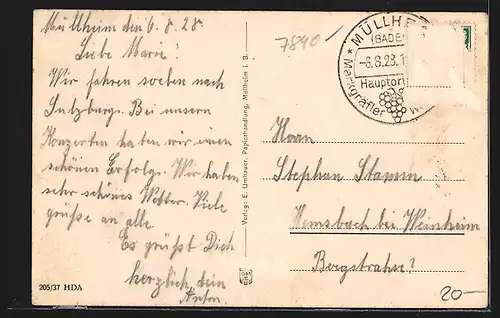 Müllheim den 6.8.28.
Liebe Marie!
Wir fahren soeben nach
Sulzburg. Bei unsern
Konzerten haben wir einen
schönen Erfolg. Wir haben
sehr schönes Wetter. Viele
grüße an alle.
Es grüßt Dich
herzlich dein
Anton.
205/37 HDA
Verlag: E. Umhauer, Papierhandlung, Müllheim i. B.
7840-
MÜLLHE
(BADE
-6.8.28.1
Hauptort
Markgräfler W
Herrn
Stephan Stamm
Hemsbach bei Weinheim
Bergstrahse!
20-